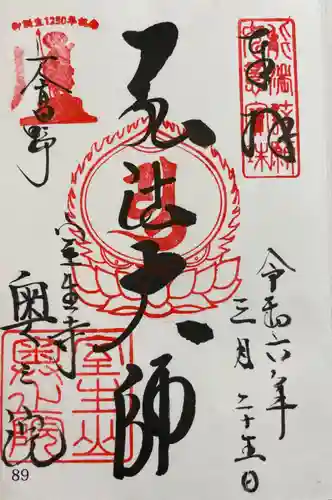 奉拝
令和六年
三月二十五日
弘法大師
御誕生1250年記念
女人高野
室生寺
奥之院
89